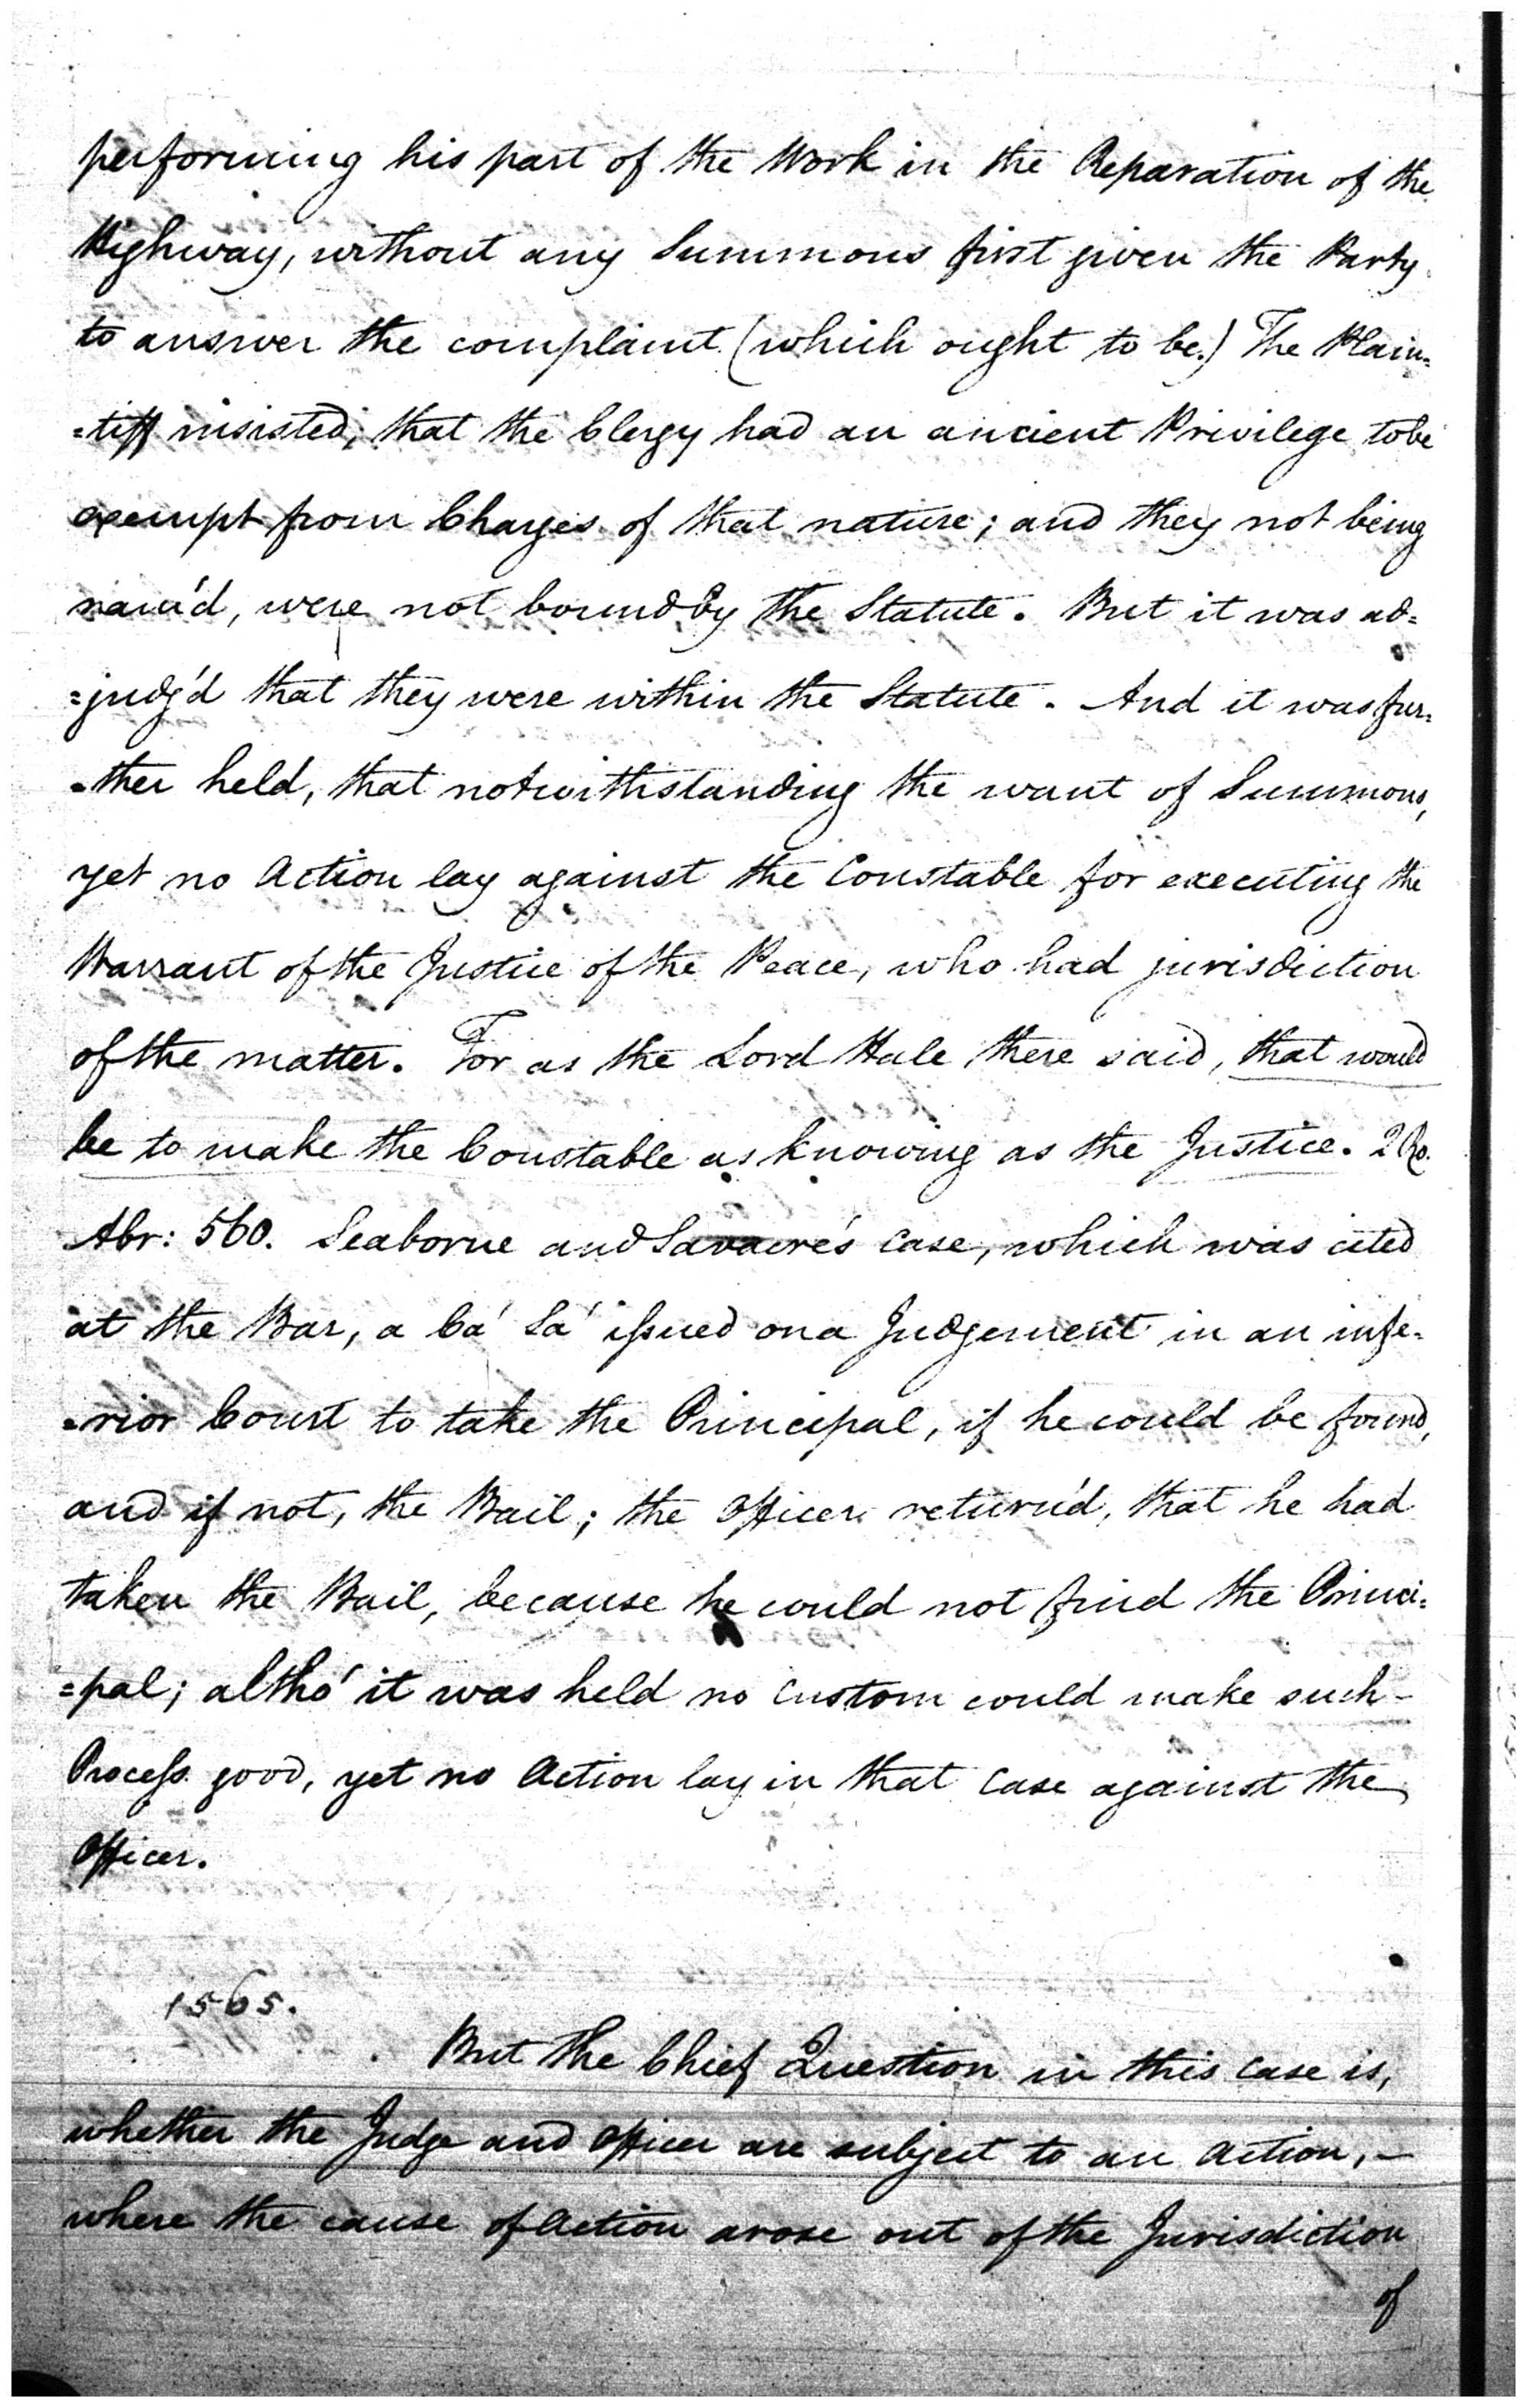 performing his part of the Work in the Reparation of the
Highway, without any Summons first given the Party
to answer the complaint (which ought to be.) The Plain=
=tiff insisted, that the Clergy had an ancient Privilege tobe
exempt from Charges of that nature; and they not being
nam'd, were not bound by the Statute. But it was ad=
=judg'd that they were within the Statute. And it was fur=
=ther held, that notwithstanding the want of Summons,
yet no Action lay against the Constable for executing the
Warrant of the Justice of the Peace, who had jurisdiction
of the matter. For as the Lord Hale there said, that would
be to make the Constable as knowing as the Justice. 2 Ro.
Abr: 560. Seaborne and Savacre's Case, which was cited
at the Bar, a Ca' Sa' issued on a Judgement in an infe=
=rior Court to take the Principal, if he could be found,
and if not, the Bail; the Officer return'd, that he had
taken the Bail, because he could not find the Princi=
=pal; altho' it was held no Custom could make such
Process good, yet no Action lay in that Case against the
Officer.
1565.
But the Chief Question in this Case is,
whether the Judge and Officer are subject to an Action,
where the cause of Action arose out of the Jurisdiction
of